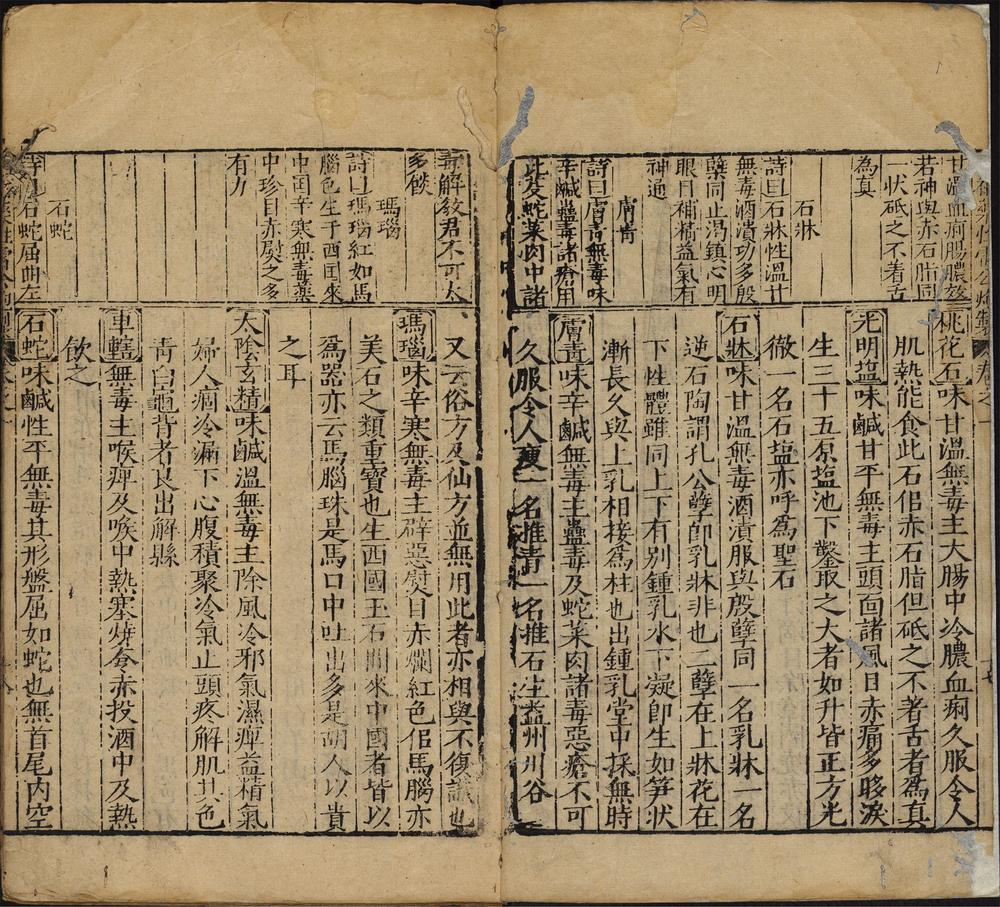 甘溫血痢腸膿效
若神與赤石脂同
一狀砥之不着舌
為真
石牀
詩曰石牀性溫甘
無毒酒漬功多殷
孽同止渴鎮心明
眼目補精益氣有
神通
膚青
詩曰膚青無毒味
辛鹹蠱毒諸瘡用
此及蛇菜肉中諸
桃花石味甘溫無毒主大腸中冷膿血痢久服令人
肌熱能食此石佀赤石脂但砥之不著舌者爲真
光明塩味鹹甘平無毒主頭面諸風目赤痛多眵淚
生三十五原塩池下鑿取之大者如升皆正方光
徹一名石塩亦呼爲聖石
石牀味甘溫無毒酒漬服與殷孽同一名乳牀一名
逆石陶謂孔公孽即乳牀非也二孽在上牀花在
下性體雖同上下有别鍾乳水下凝即生如笋狀
漸長久與上乳相接爲柱也出鍾乳堂中採無時
膚青味辛鹹無毒主蠱毒及蛇菜肉諸毒惡瘡不可
久服令人瘦一名推青一名推石生益州川谷
毒解教君不可太
多餤
瑪瑙
詩曰瑪瑙紅如馬
腦色生于西囯來
中囯辛寒無毒藥
中珍目赤熨之多
有力
石蛇
詩曰石蛇屈曲左
又云俗方及仙方並無用此者亦相與不復識也
瑪瑙味辛寒無毒主辟惡熨目赤爛紅色佀馬腦亦
美石之類重寶也生西國玉石間來中國者皆以
爲器亦云馬腦珠是馬口中吐出多是胡人以貴
之耳
太陰玄精味鹹溫無毒主除風冷邪氣濕痺益精氣
婦人痼冷漏下心腹積聚冷氣止頭疼解肌其色
青白龜背者良出解縣
車轄無毒主喉痺及喉中熱塞燒令赤投酒中及熱
飲之
石蛇味鹹性平無毒其形盤屈如蛇也無首尾内空